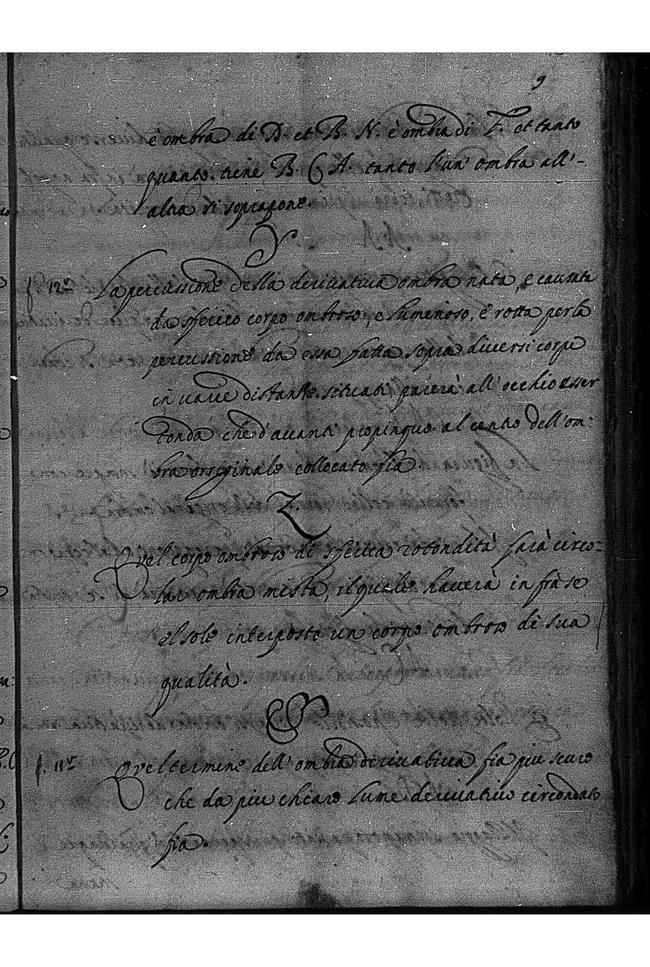 9
è ombra di D. et B. N. è ombra di F. et tanto
quanto tiene B C A. tanto l'un' ombra all'-
altra si soprapone.
Y
f. 12. La percussione della derivativa ombra nata, e causata
da sferico corpo ombroso, e luminoso, è rotta per la
percussione da essa fatta sopra diversi corpi
in varie distante situati, parerà all' occhio esser
tonda che d'avanti propinquo al cento dell' om:
bra originale collocato sia
Z
Quel corpo ombroso di sferica rotondità farà circo-
lar ombra mista, il quale haverà in fra se
el sole interposto un corpo ombroso di sua
qualità.
&
f. 11. Quel termine dell' ombra derivativa fia piu scuro
che da piu chiaro lume derivativo circondato
fia.